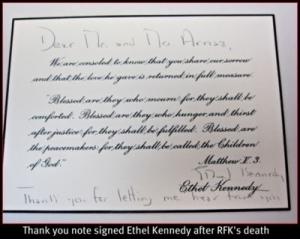 Dear Mr. and Mrs.
We are consoled to know that you share our sorrow
and that the love he gave is returned in full measure.
"Blessed are they who mourn for they shall be
comforted. Blessed are they who hunger and thirst
after justice for they shall be fulfilled. Blessed are
the peacemakers for they shall be called the Children
of God."
Matthew V. 3.
Ethel Kennedy
Ethel Kennedy
Thank you for letting me hear from you
Thank you note signed Ethel Kennedy after RFK's death